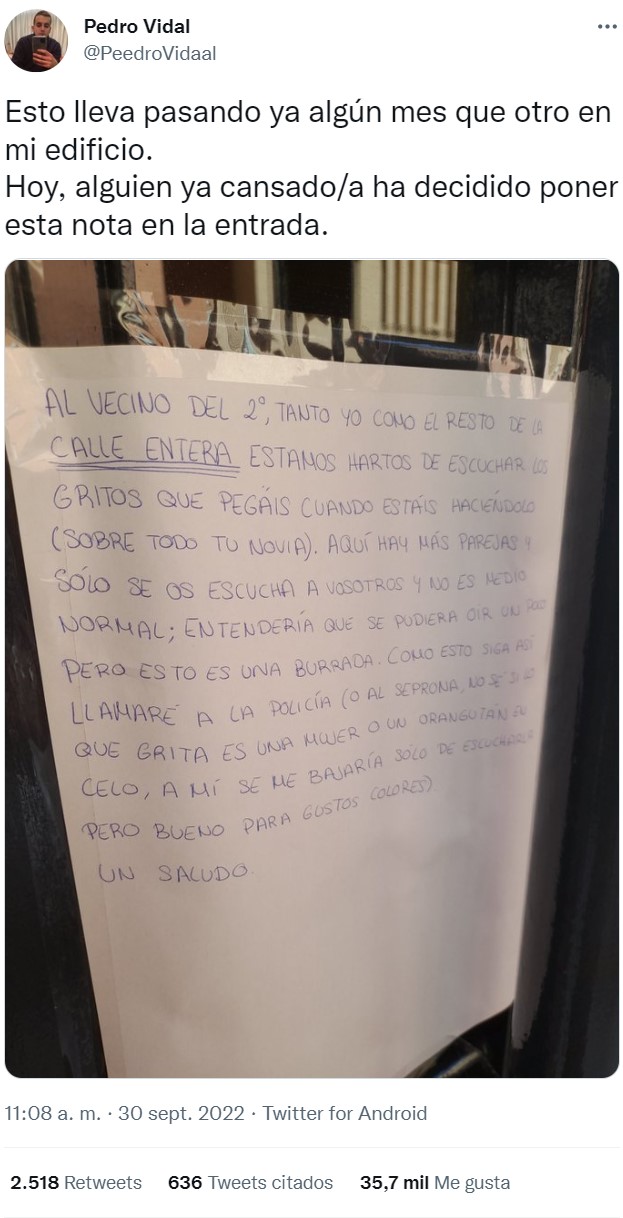 Pedro Vidal
@PeedroVidaal
Esto lleva pasando ya algún mes que otro en
mi edificio.
Hoy, alguien ya cansado/a ha decidido poner
esta nota en la entrada.
AL VECINO DEL 2º, TANTO YO COMO EL RESTO DE LA
CALLE ENTERA ESTAMOS HARTOS DE ESCUCHAR LOS
GRITOS QUE PEGÁIS CUANDO ESTÁIS HACIÉNDOLO
(SOBRE TODO TU NOVIA). AQUÍ HAY MÁS PAREJAS Y
SÓLO SE OS ESCUCHA A VOSOTROS Y NO ES MEDIO
NORMAL; ENTENDERÍA QUE SE PUDIERA OIR UN POCO
PERO ESTO ES UNA BURRADA. COMO ESTO SIGA ASÍ
LLAMARÉ A LA POLICÍA (O AL SEPRONA, NO SÉ SI LO
QUE GRITA ES UNA MUJER O UN ORANGUTÁN EN
CELO, A MÍ SE ME BAJARÍA SÓLO DE ESCUCHARLA
PERO BUENO PARA GUSTOS COLORES)
UN SALUDO.
11:08 a. m. · 30 sept. 2022 · Twitter for Android
2.518 Retweets 636 Tweets citados 35,7 mil Me gusta